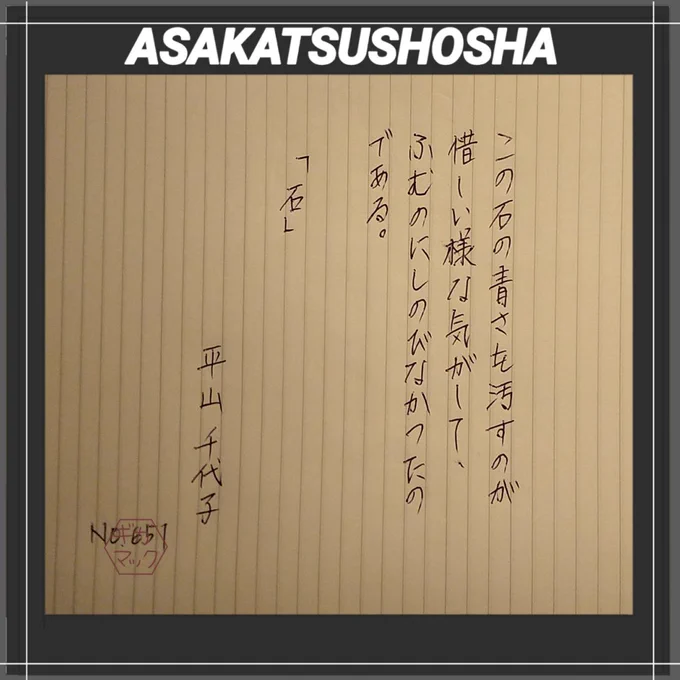 ASAKATSUSHOSHA
この石の青さを汚すのが
惜しい様な気がして、
ふむのにしのびなかつたの
である。
「石」
平山千代子
No.651
マック